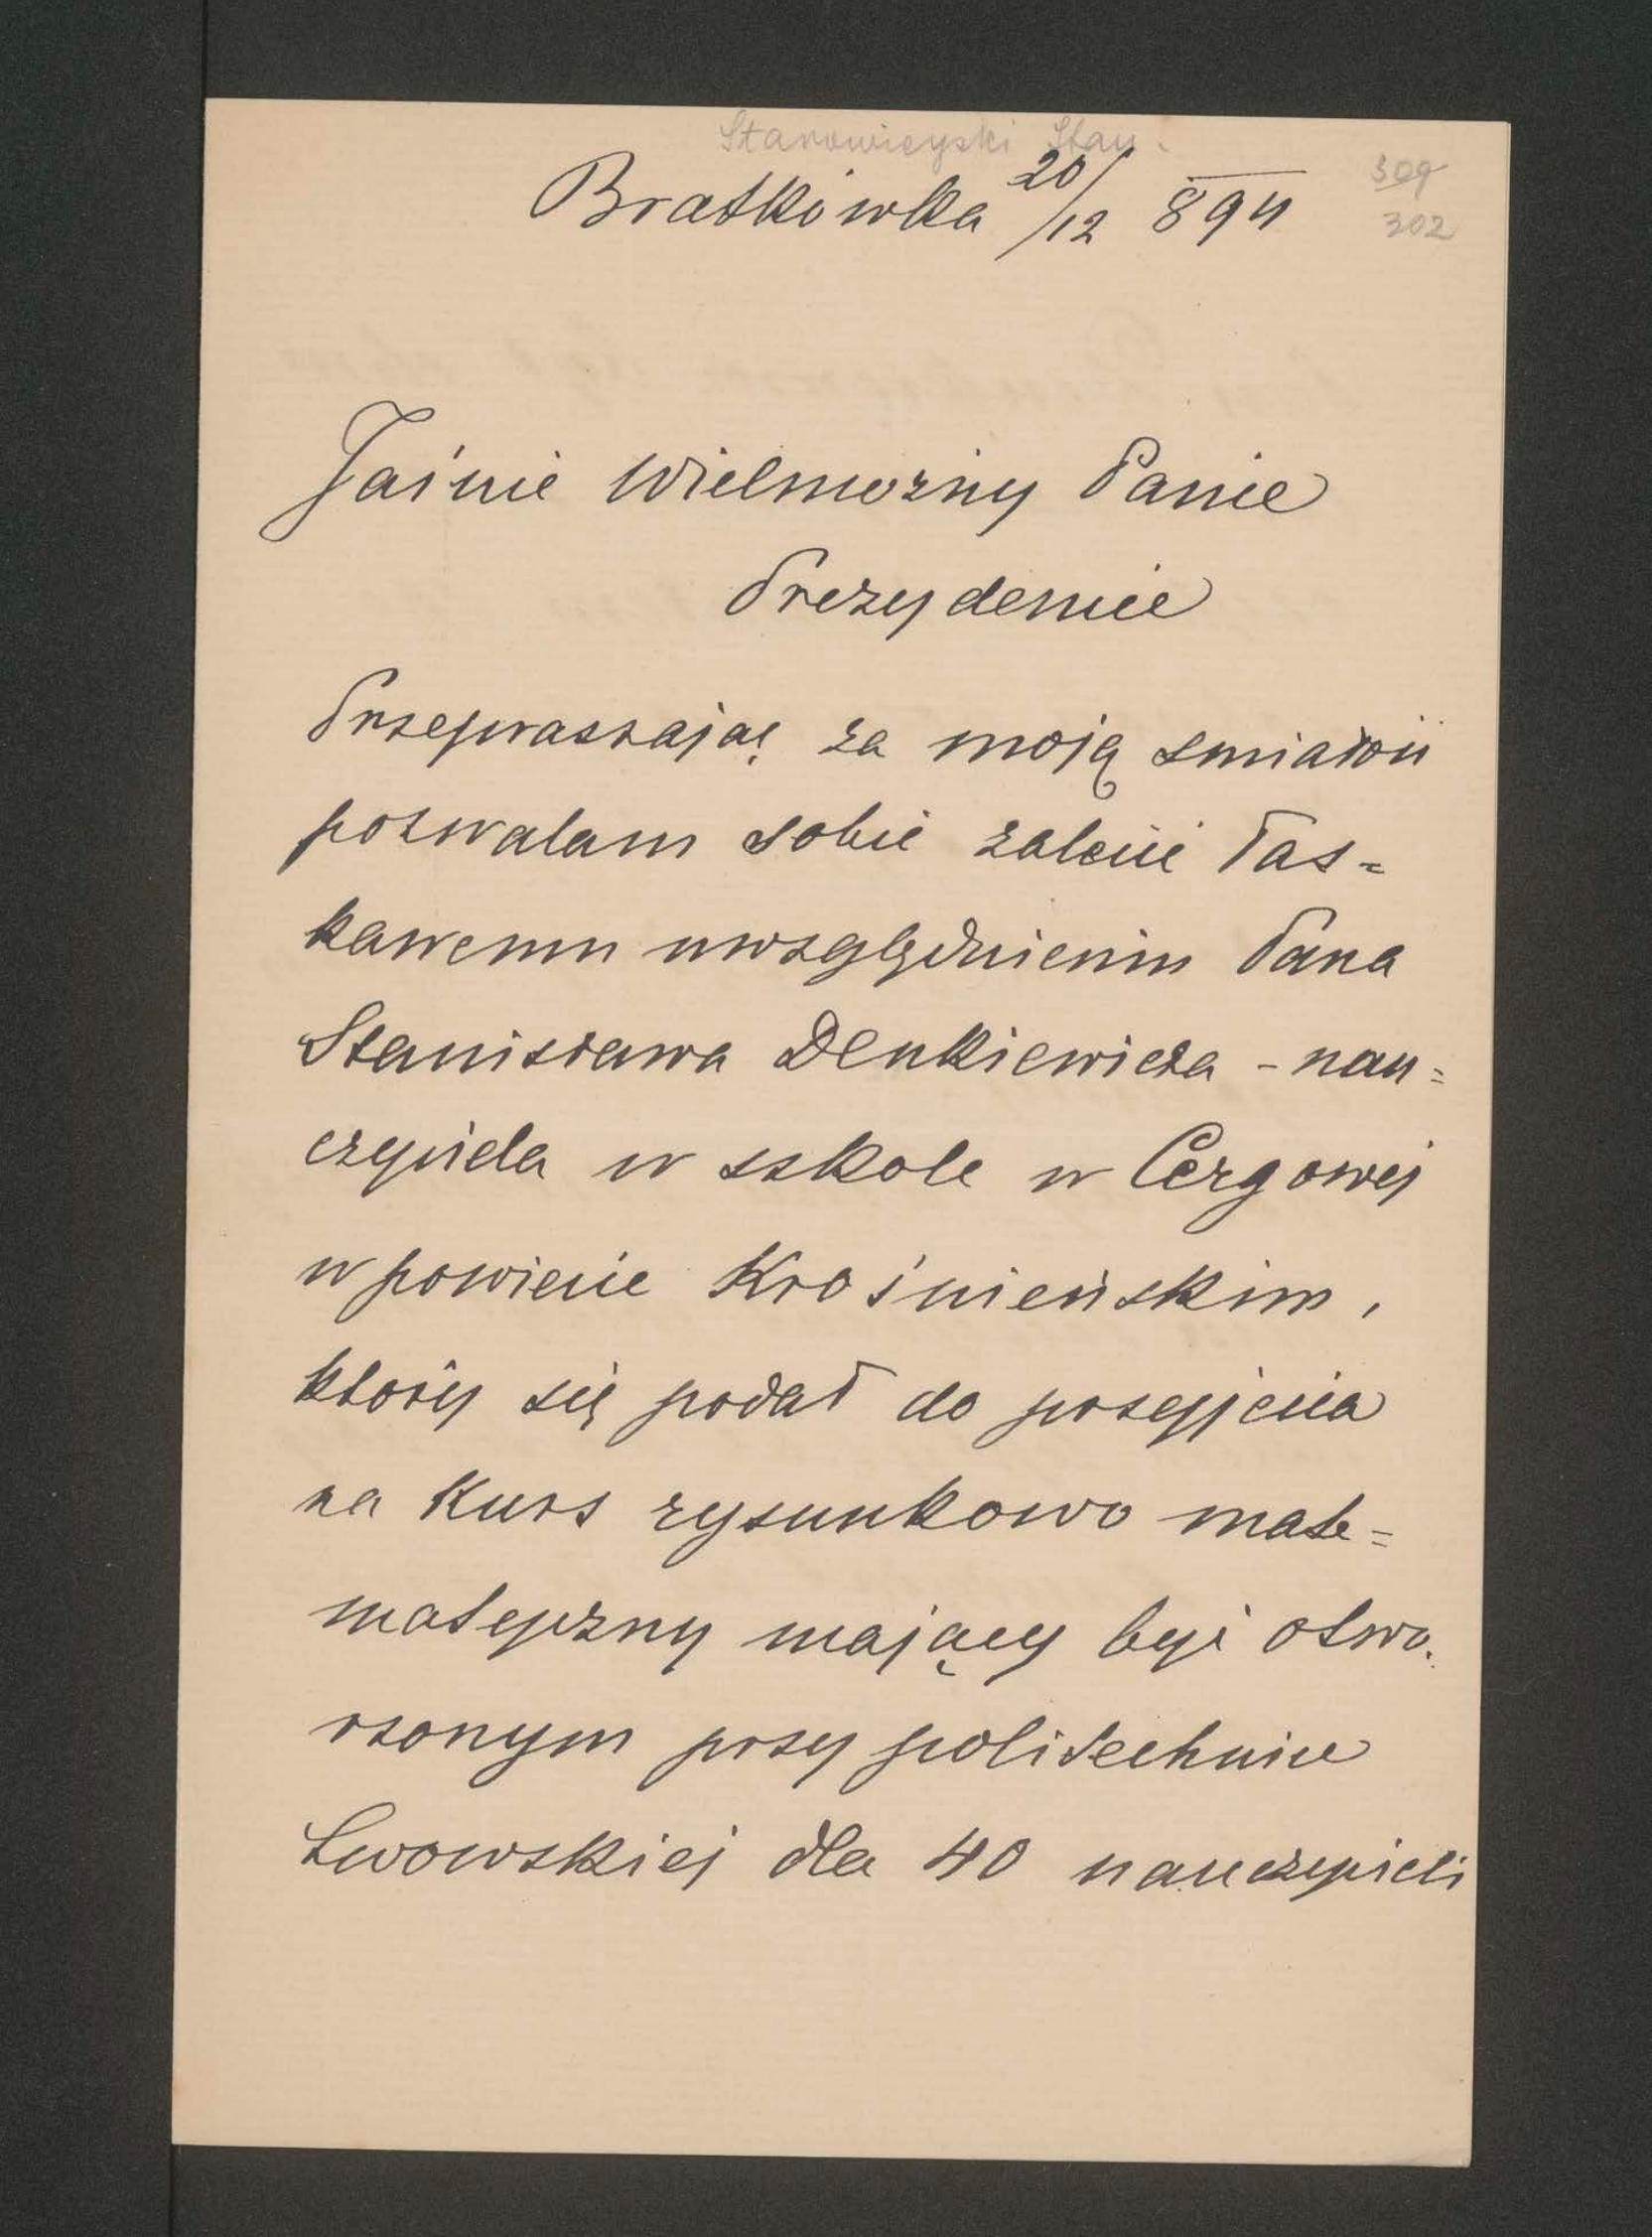 Starowieyski Stan.
Bratkówka 20/12 894
309
302
Jaśnie Wielmożny Panie
Prezydencie
Przepraszając za moją smiałość
pozwalam sobie zalecić łas=
kawemu uwzględnieniu Pana
Stanisława Denkiewicza - nau=
czyciela w szkole w Cergowej
w powiecie Krośnieńskim,
który się podał do przyjęcia
na Kurs rysunkowo mate=
matyczny mający być otwo=
rzonym przy politechnice
Lwowskiej dla 40 nauczycieli